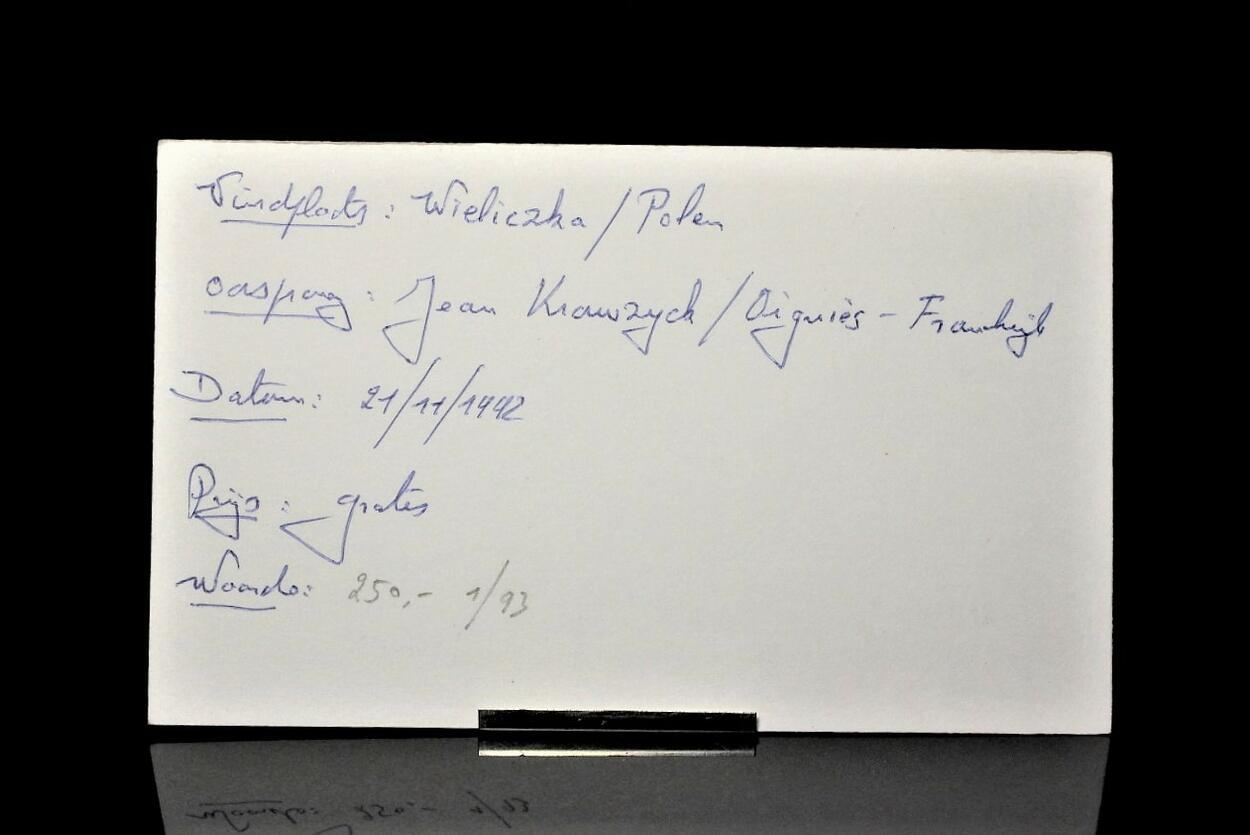 Vindplaats: Wieliczka / Polen
oorsprong: Jean Krawzyck / Oignies - Frankrijk
Datum: 21/11/1992
Prijs: gratis
Waarde: 250,- 1/93